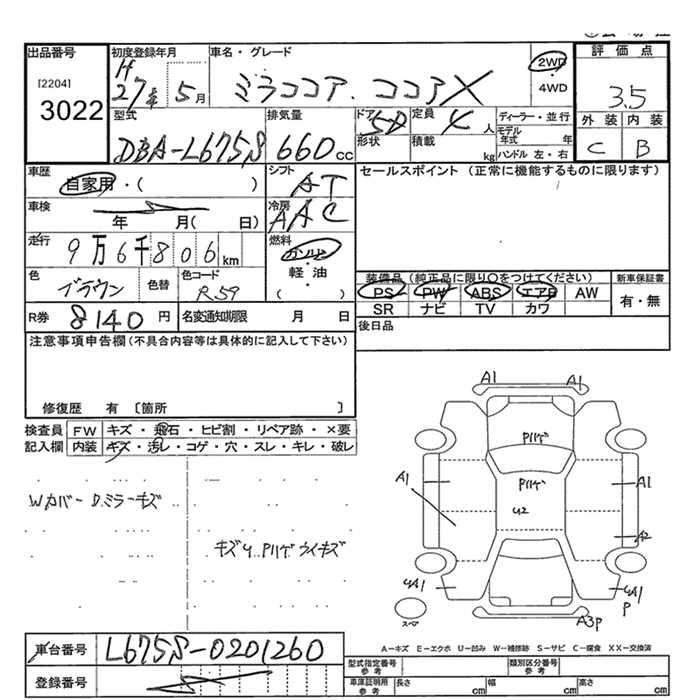 出品番号
[2204]
3022
初度登録年月
H27年 5月
車名・グレード
ミラココア ココアX
2WD
・
4WD
評価点
3.5
外装 内装
C B
型式
DBA-L675S
排気量
660cc
ドア 5D
形状
定員 4人
積載 kg
ディーラー・並行
モデル年式 年
ハンドル 左・右
車歴
自家用・( )
シフト
AT
セールスポイント (正常に機能するものに限ります)
車検
年 月( 日)
冷房
AAC
走行
9万6千806km
燃料
ガソリン
軽・油
( )
色
ブラウン
色替
色コード
R59
装備品 (純正品に限り○をつけてください)
PS PW ABS エアB AW
SR ナビ TV カワ
新車保証書
有・無
R券 8140円
名変通知期限 月 日
後日品
注意事項申告欄(不具合内容等は具体的に記入して下さい)
修復歴 有 〔箇所 〕
検査員記入欄
FW キズ・飛石・ヒビ割・リペア跡・×要
内装 キズ・汚レ・コゲ・穴・スレ・キレ・破レ
Wカバー D.ミラーキズ
キズU Pハゲ ウイキズ
A1 A1
Pハゲ
A1 Pハゲ A1
U2
A2
UA1 UA1
P
スペア
A3P
A-キズ E-エクボ U-凹み W-補修跡 S-サビ C-腐食 XX-交換済
車台番号 L675S-0201260
登録番号
型式指定番号
参考
類別区分番号
参考
車庫証明用
参考
長さ cm 幅 cm 高さ cm